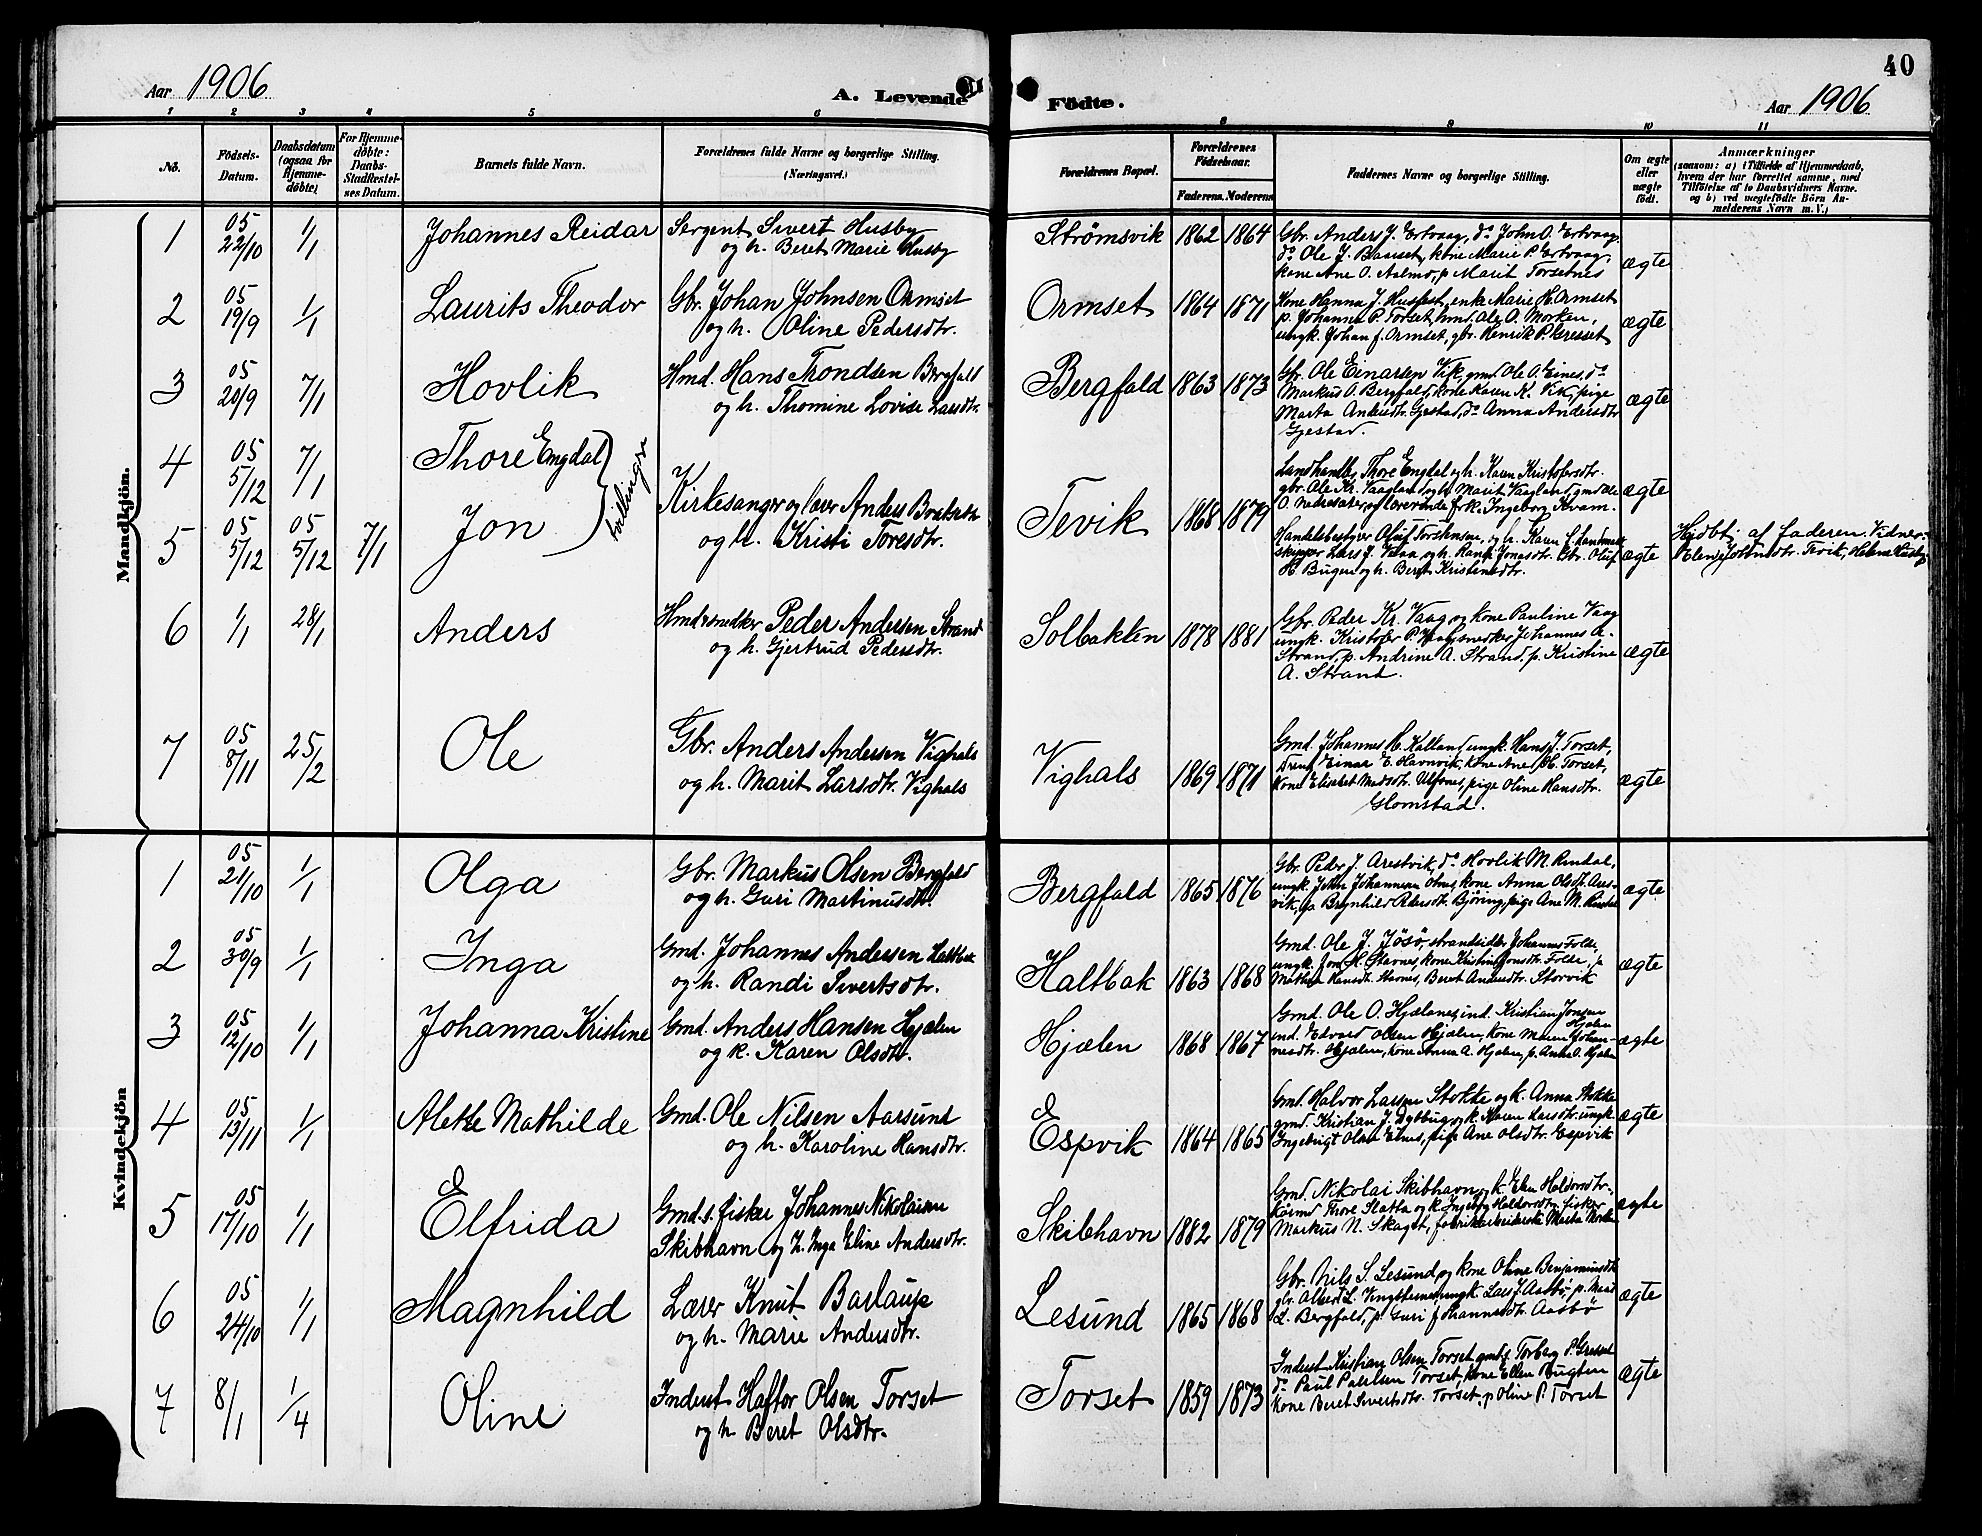 Aar 1906
A. Levende
Födte.
40
Aar 1906
1 2 3 4 5 6 8 9 10 11
No.
Födsels-
Datum.
Daabsdatum
(ogsaa for
Hjemme-
döbte)
For Hjemme-
döbte:
Daabs-
Stadfæstel-
ses Datum.
Barnets fulde Navn.
Forældrenes fulde Navne og borgerlige Stilling.
(Næringsvei.)
Forældrenes Bopæl.
Forældrenes
Födselsaar.
Faderens. Moderens.
Faddernes Navne og borgerlige Stilling.
Om ægte
eller
uægte
födt.
Anmærkninger
(saasom: a) i Tilfælde af Hjemmedaab,
hvem der har forrettet samme, med
Tilföielse af to Daabsvidners Navne.
og b) ved uægtefödte Börn An-
melderens Navn m. V.)
Mandkjön.
1 05 22/10 1/1 Johannes Reidar Sergent Sivert Husby
og h. Beret Marie Husby
Strömsvik 1862 1864 Gbr. Anders J. Ertvaag, do John O. Ertvaag,
do Ole J. Baasset, kone Marie P. Ertvaag,
kone Ane O. Aalmo, p. Marit Torsetnes
ægte
2 05 19/9 1/1 Laurits Theodor Gbr. Johan Johnsen Ormset
og h. Oline Pedersdtr.
Ormset 1864 1871 Kone Hanna J. Husfast, enke Marie H. Ormset
p. Johanna P. Torset, hmd. Ole O. Morken,
ungk. Johan J. Ormset, gbr. Henrik P. Gresset
ægte
3 05 20/9 7/1 Hovlik Hmd. Hans Trondsen Bergfald
og h. Thomine Lovise Larsdtr.
Bergfald 1863 1873 Gbr. Ole Einarsen Vik, gmd. Ole A. Eines, do
Markus O. Bergfald, kone Karen K. Vik, pige
Marta Andersdtr. Gjestad, do Anna Andersdtr
Gjestad.
ægte
4 05 5/12 7/1 Thore Engdal
tvillinger
5 05 5/12 05 5/12 7/1 Jon
Kirkesanger og lærer Anders
og h. Kristi Toresdtr.
Tevik 1868 1879
Landhandler Thore Engdal og h. Karen Kristofersdtr.
gbr. Ole Kr. Vaagland og h. Marit Vaagland, gmd Ole
O. Nedresæter og lærerinde frk. Ingeborg Kvam.
ægte
Handelsbestyrer Oluf Torstensen, og h. Karen
skipper Lars J. Vaag og h. Randi Jonasdtr. Gbr. Oluf
H. Bugen og h. Beret Kristensdtr.
ægte
Hjdbt. af faderen. Vidner:
Elen Johnsdtr. Tevik, Helene Husby
6 1/1 28/1 Anders Hmd & snedker Peder Andersen Strand
og h. Gjertrud Pedersdtr.
Solbakken 1878 1881 Gbr. Peder Kr. Vaag og kone Pauline Vaag
ungk. Kristofer P. Vaag, snedker Johannes A.
Strand, p. Andrine A. Strand, p. Kristine
A. Strand.
ægte
7 05 8/11 25/2 Ole Gbr. Anders Andersen Vighals
og h. Marit Larsdtr. Vighals
Vighals 1869 1871 Gmd. Johannes H. Kalland, ungk. Hans J. Torset,
Einar E. Havnvik, kone Ane H. Torset,
kone Elisabet Madsdtr. Ulfsnes, pige Oline Hansdtr.
Glomstad.
ægte
Kvindekjön
1 05 21/10 1/1 Olga Gbr. Markus Olsen Bergfald
og h. Guri Martinusdtr.
Bergfald 1865 1876 Gbr. Peder J. Aresvik, do Hovlik M. Rindal,
ungk. John Johannesen Olnes, kone Anna Olsdtr. Ares-
vik, p. Brynhild Pedersdtr. Björing, pige Ane M. Rindal
ægte
2 05 30/9 1/1 Inga Gmd. Johannes Andersen Haltbak
og h. Randi Sivertsdtr.
Haltbak 1863 1868 Gmd. Ole J. Jösö, strandsidder Johannes Folde,
ungk. Jon H. Stavnes, kone Kristine Jonsdtr. Folde, p.
Mathea Hansdtr. Stavnes, Beret Andersdtr Storvik
ægte
3 05 12/10 1/1 Johanna Kristine Gmd. Anders Hansen Hjælen
og k. Karen Olsdtr.
Hjælen 1868 1867 Gmd. Ole O. Hjælanes, ind. Kristian Jonsen
Hjælen
ind. Edvard Olsen Hjælen, kone Maren Johan-
nesdtr. Hjælen, kone Anna A. Hjælen, p. Anne O. Hjælen
ægte
4 05 13/11 1/1 Alette Mathilde Gmd. Ole Nilsen Aarsund
og h. Karoline Hansdtr.
Espvik 1864 1865 Gmd. Halvor Larsen Stokke og k. Anna Stokke
gmd. Kristian J. og k. Maren Larsdtr. ungk.
Ingebrigt Olsen Eines, pige Ane Olsdtr. Espvik
ægte
5 05 17/10 1/1 Elfrida Gmd. s. fisker Johannes Nikolaisen
Skibhavn og h. Inga Eline Andersdtr.
Skibhavn 1882 1879 Gmd. Nikolai Skibhavn og k. Elen Haldorsdtr.,
Thore Slatta og k. Ingeborg Haldorsdtr., fisker
Markus N. Skaget, fabrikarbeiderske Marta
ægte
6 05 24/10 1/1 Magnhild Lærer Knut Barlaup
og h. Marie Andersdtr.
Lesund 1865 1868 Gbr. Nils S. Lesund og kone Oline Benjaminsdtr
gbr. Albert L. Vingsternes, ungk. Lars J. Aasbö, p.
L. Bergfald, p. Guri Johannesdtr. Aasbö
ægte
7 8/1 1/4 Oline Inderst Haftor Olsen Torset
og h. Beret Olsdtr.
Torset 1859 1873 Inderst Kristian Olsen Torset, gmd. Torberg P. Gresset
do Paul Paulsen Torset, kone Ellen Bugten
kone Beret Sivertsdtr. Torset, p. Oline P. Torset
ægte